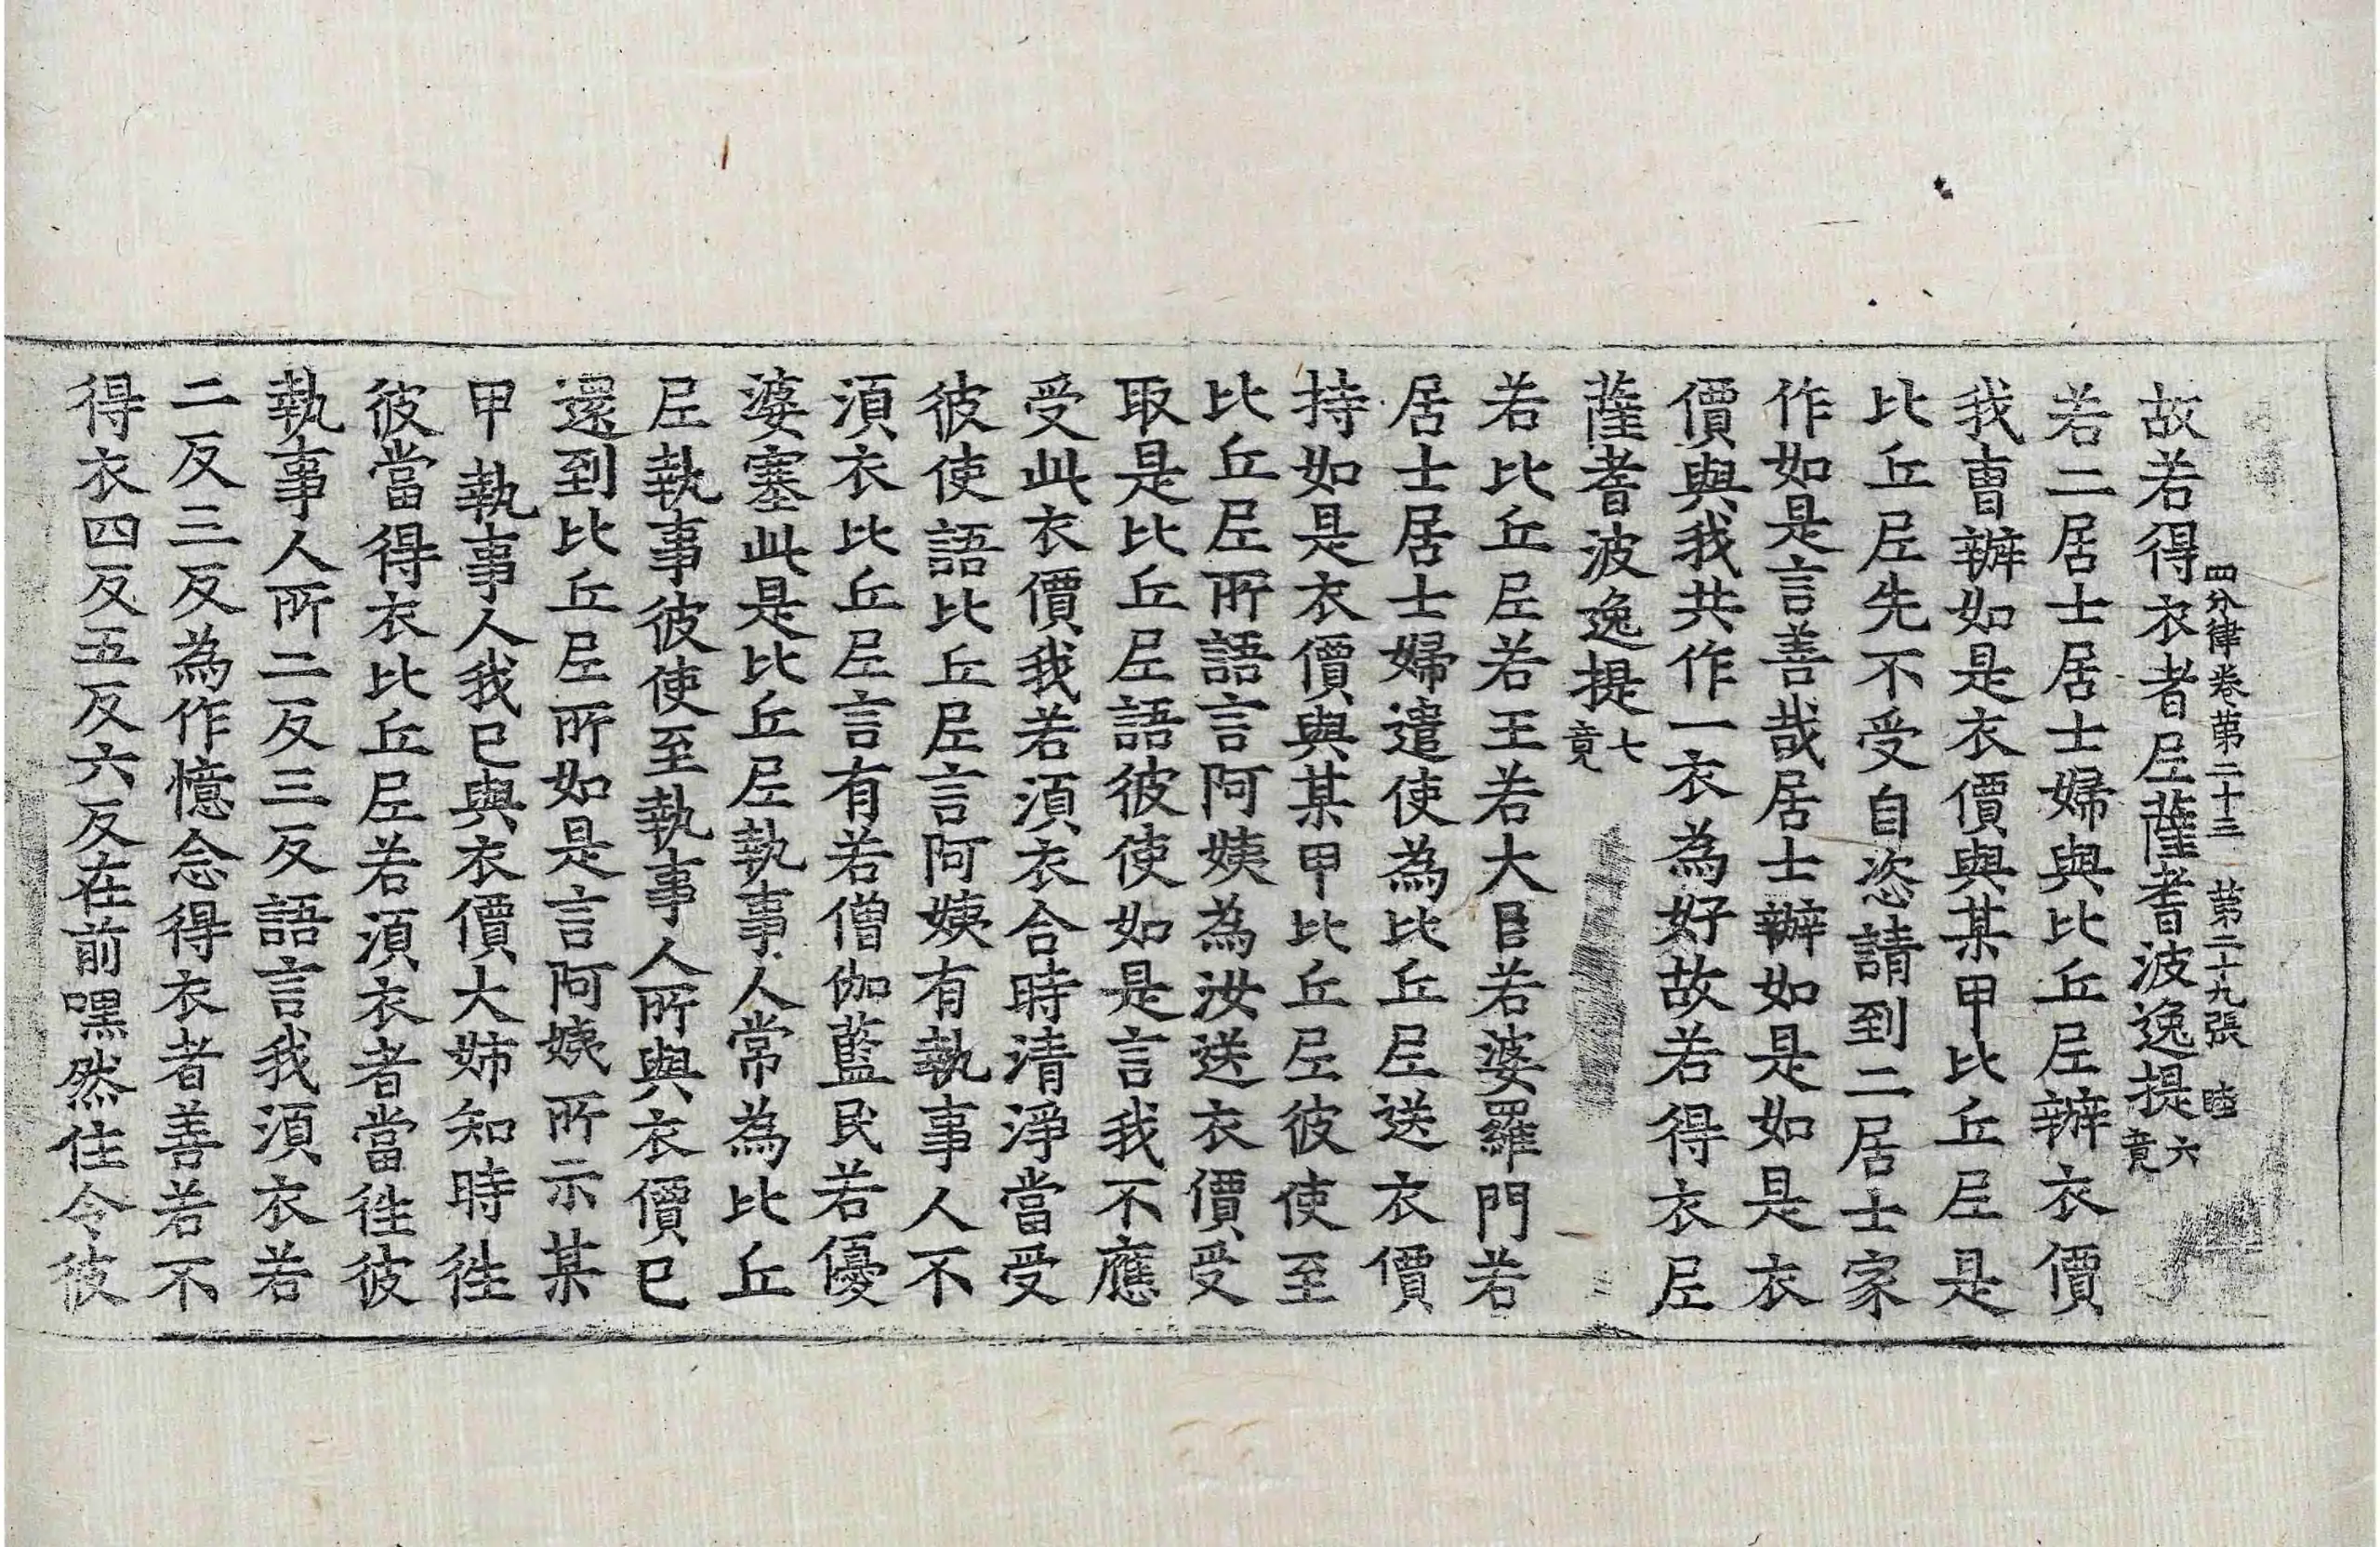 四分律卷第二十三 第二十九張 睦
故若得衣者尼薩耆波逸提六竟
若二居士居士婦與比丘尼辦衣價
我曹辦如是衣價與某甲比丘尼是
比丘尼先不受自恣請到二居士家
作如是言善哉居士辦如是如是衣
價與我共作一衣為好故若得衣尼
薩耆波逸提七竟
若比丘尼若王若大臣若婆羅門若
居士居士婦遣使為比丘尼送衣價
持如是衣價與某甲比丘尼彼使至
比丘尼所語言阿姨為汝送衣價受
取是比丘尼語彼使如是言我不應
受此衣價我若須衣合時清淨當受
彼使語比丘尼言阿姨有執事人不
須衣比丘尼言有若僧伽藍民若優
婆塞此是比丘尼執事人常為比丘
尼執事彼使至執事人所與衣價已
還到比丘尼所如是言阿姨所示某
甲執事人我已與衣價大姊知時往
彼當得衣比丘尼若須衣者當往彼
執事人所二反三反語言我須衣若
二反三反為作憶念得衣者善若不
得衣四反五反六反在前嘿然住令彼